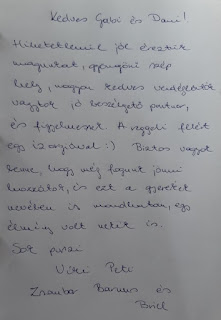 Kedves Gabi és Dani!
Hihetetlenül jól éreztük
magunkat, gyönyörű szép
hely, nagyon kedves vendéglátók
vagytok, jó beszélgető partner,
és figyelmesek. A reggeli felért
egy íz orgiával :) Biztos vagyok
benne, hogy még fogunk jönni
hozzátok, és ezt a gyerekek
nevében is mondhatom, egy
élmény volt nekik is.
Sok puszi
Viki Peti
Zsombor Barnus és